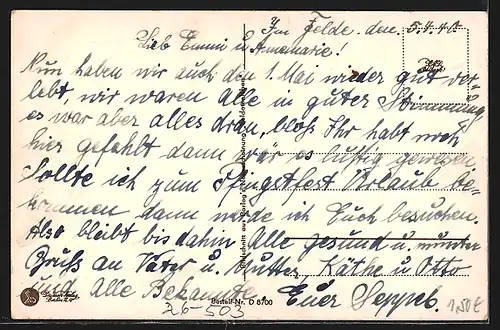 Im Felde, den 5.4.40
Lieb Emmi u. Annemarie!
Nun haben wir auch den 1 Mai wieder gut ver-
lebt, wir waren alle in guter Stimmung,
es war aber alles dran, bloß Ihr habt noch
hier gefehlt dann wär es lustig gewesen
Sollte ich zum Pfingstfest Urlaub be-
kommen dann werde ich Euch besuchen.
Also bleibt bis dahin Alle gesund u. munter
Gruß an Vater u. Mutter, Käthe u. Otto
und Alle Bekannte. Euer Seppel.
Bestell-Nr. D 6700
26-503
1,50€